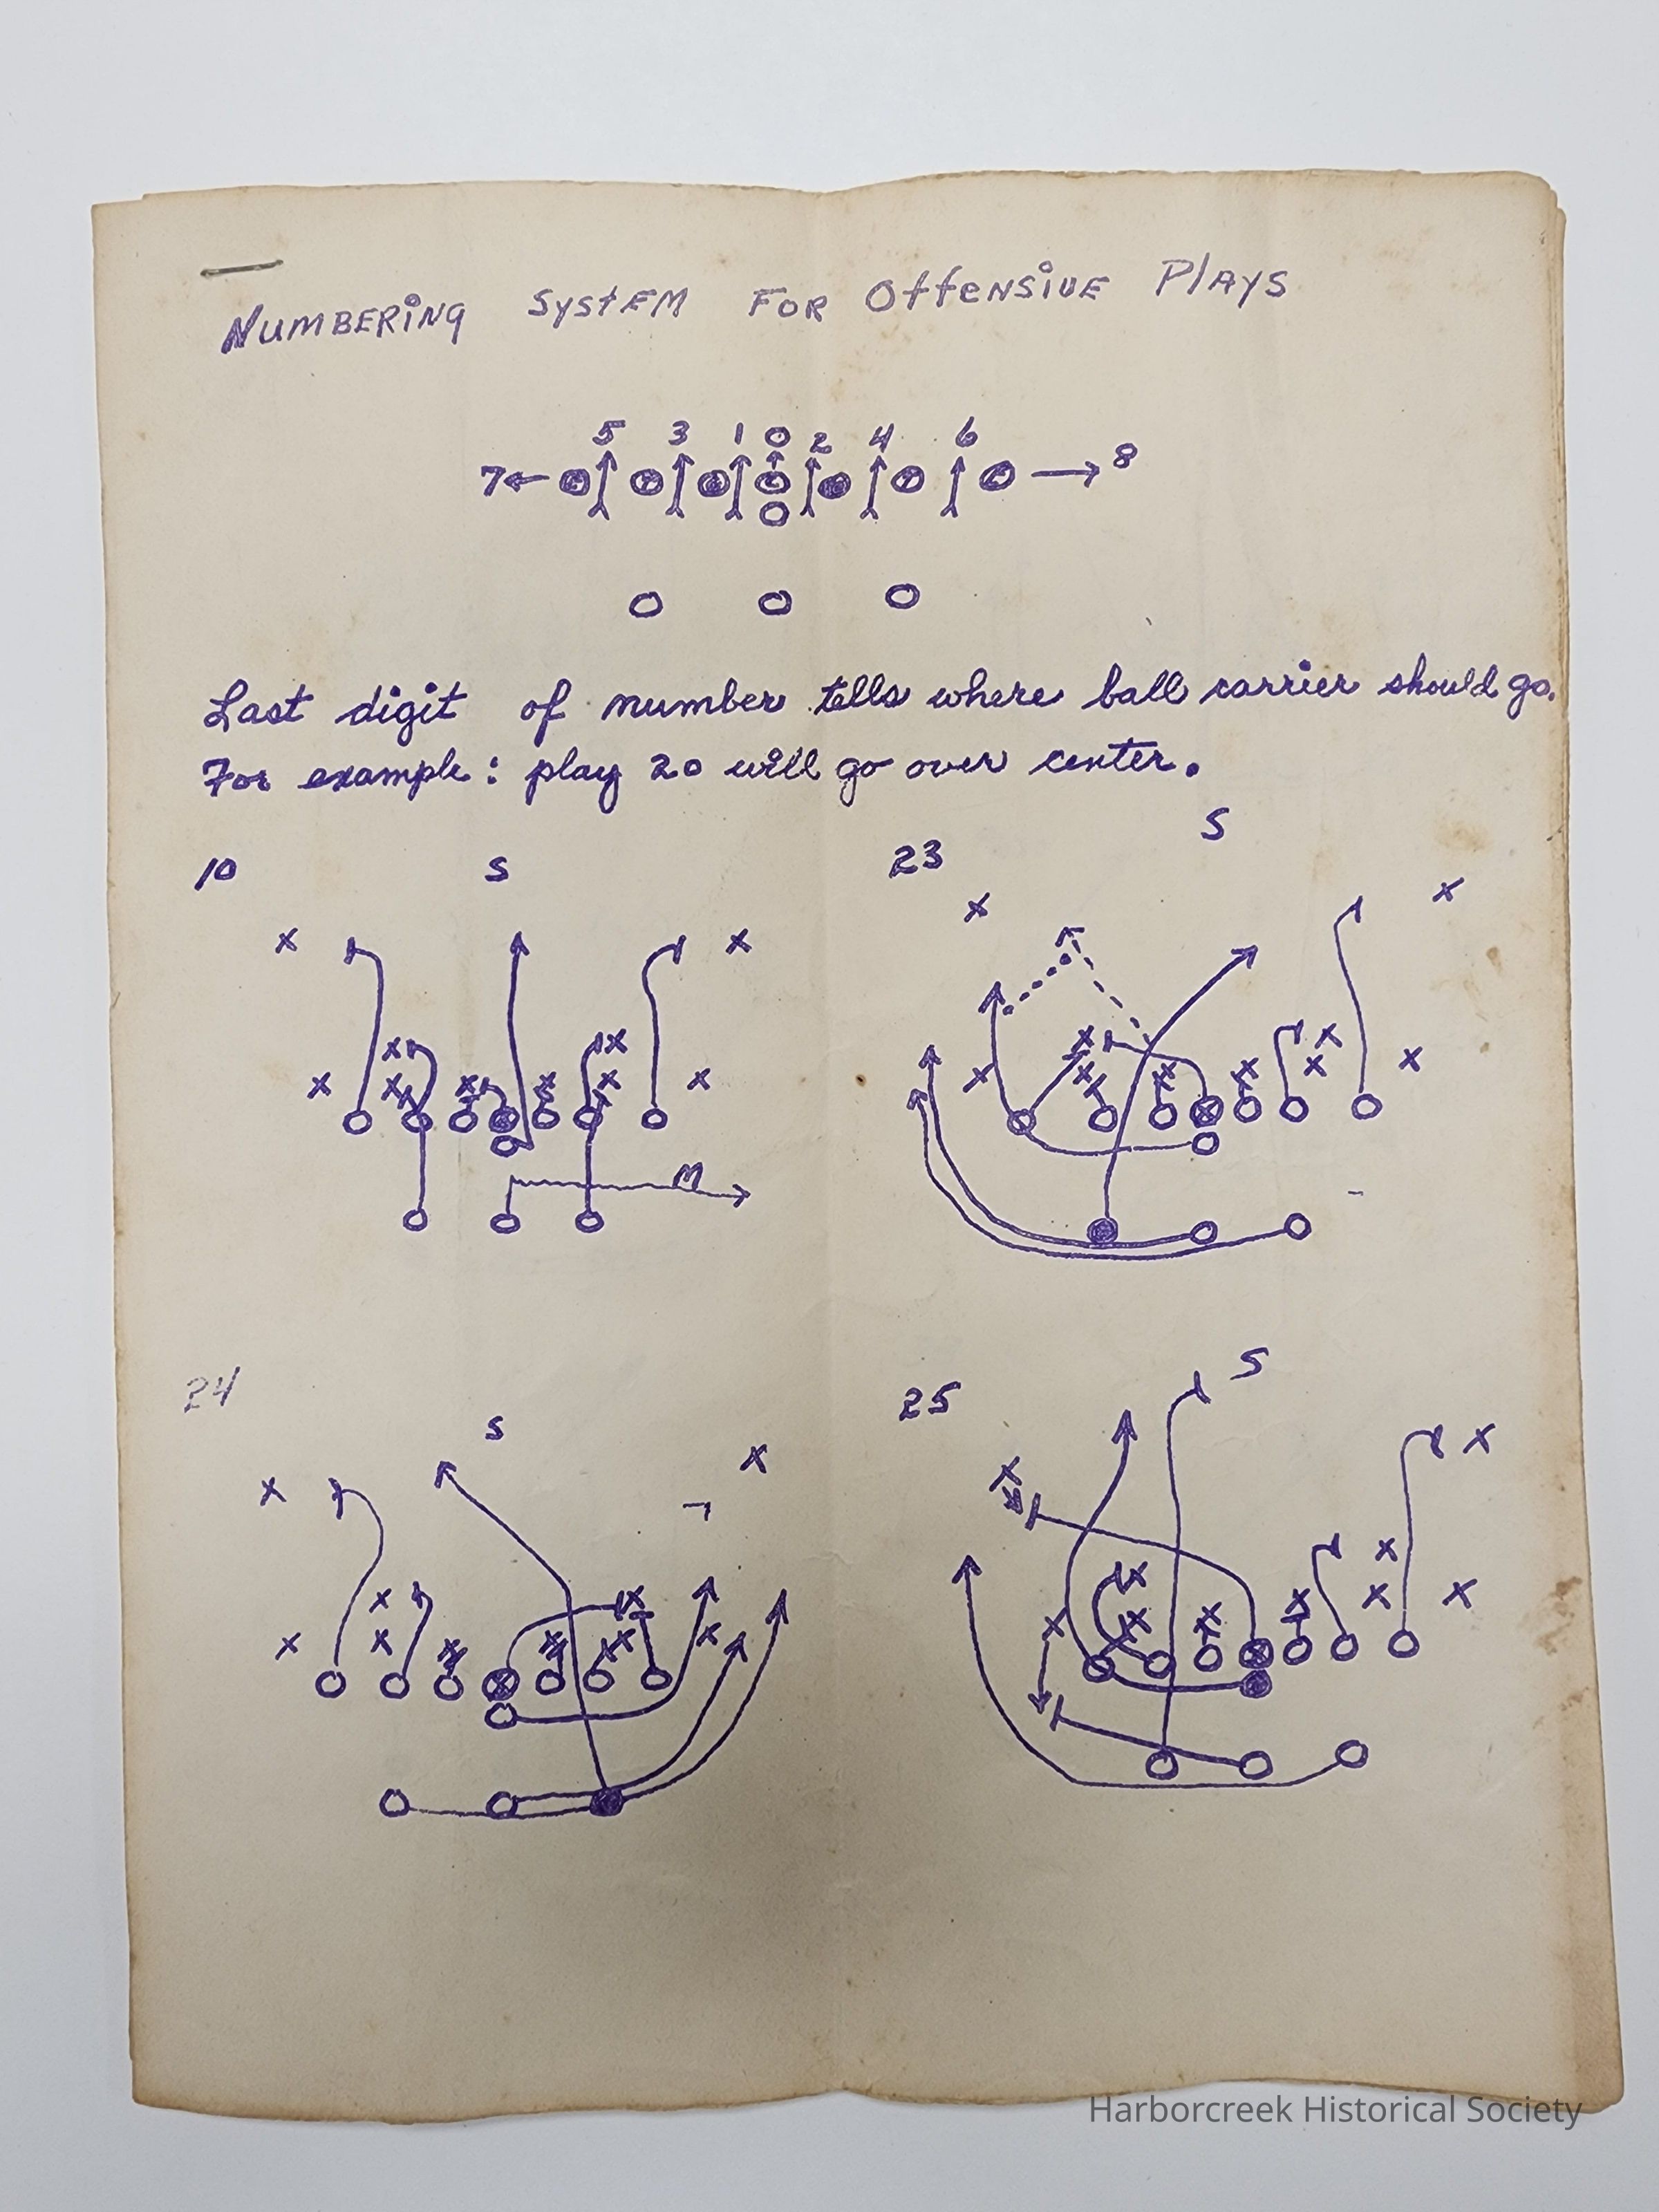 NUMBERING SYSTEM FOR OFFENSIVE PLAYS
5 3 1 0 2 4 6
7 8
Last digit of number tells where ball carrier should go.
For example: play 20 will go over center.
10 S
23 S
M
24 S
25 S
Harborcreek Historical Society